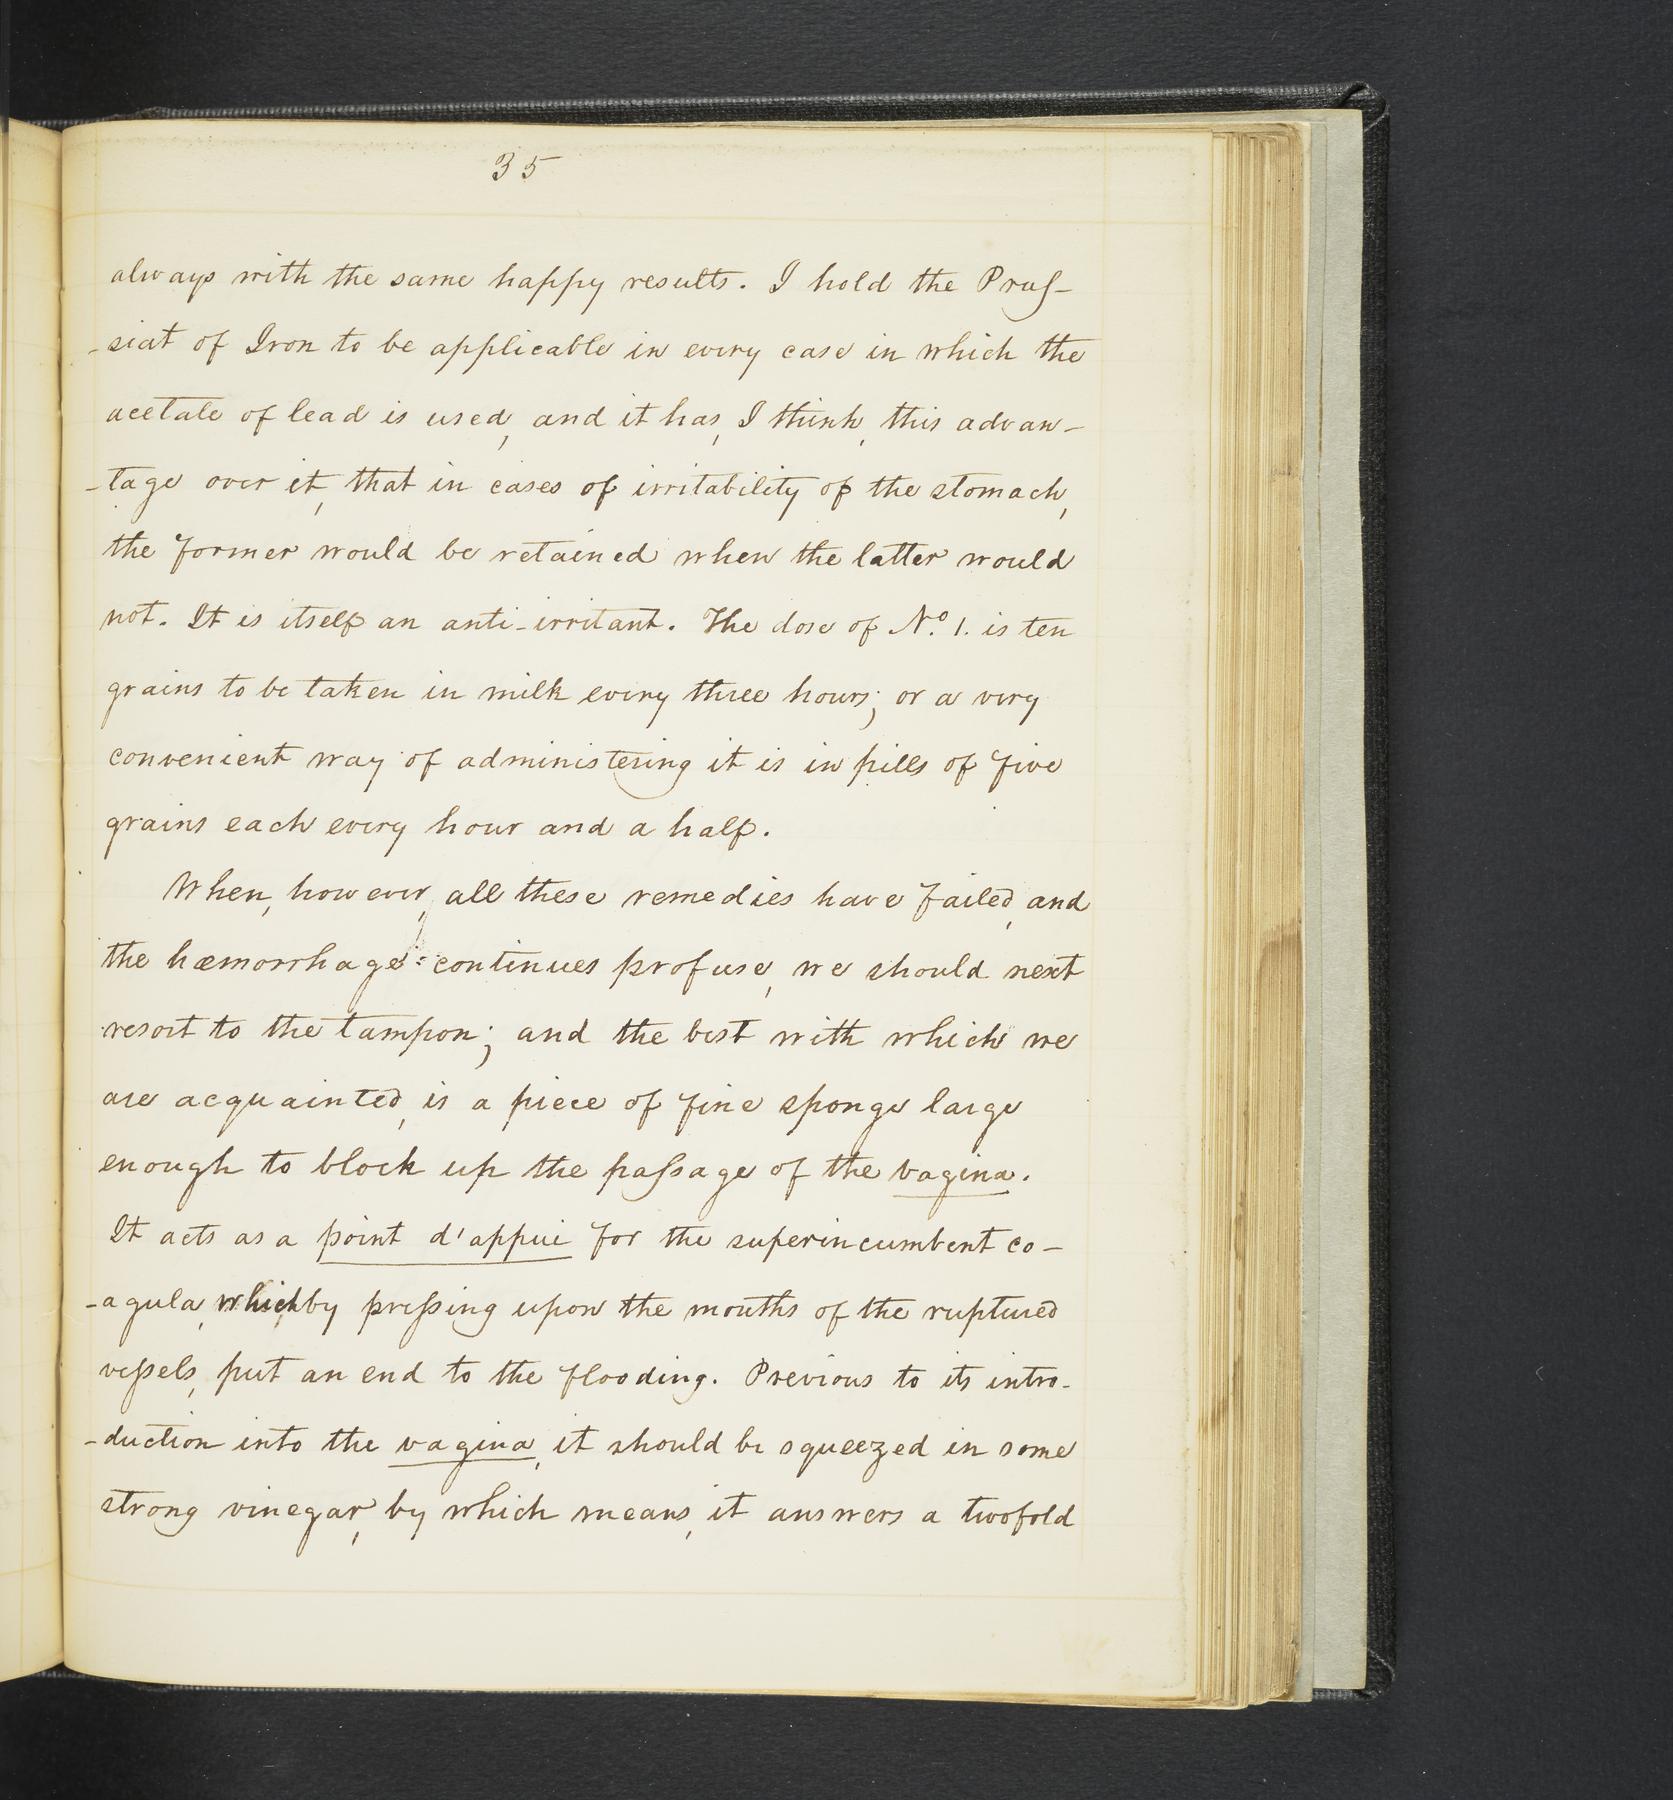 35
always with the same happy results. I hold the Prus-
-siat of Iron to be applicable in every case in which the
acetate of lead is used, and it has, I think, this advan-
-tage over it, that in cases of irritability of the stomach,
the former would be retained when the latter would
not. It is itself an anti-irritant. The dose of No. 1. is ten
grains to be taken in milk every three hours; or a very
convenient way of administering it is in pills of five
grains each every hour and a half.
When, however, all these remedies have failed, and
the hæmorrhage continues profuse, we should next
resort to the tampon; and the best with which we
are acquainted, is a piece of fine sponge large
enough to block up the passage of the vagina.
It acts as a point d'appui for the superincumbent co-
-agula, which, by pressing upon the mouths of the ruptured
vessels, put an end to the flooding. Previous to its intro-
-duction into the vagina, it should be squeezed in some
strong vinegar, by which means, it answers a twofold